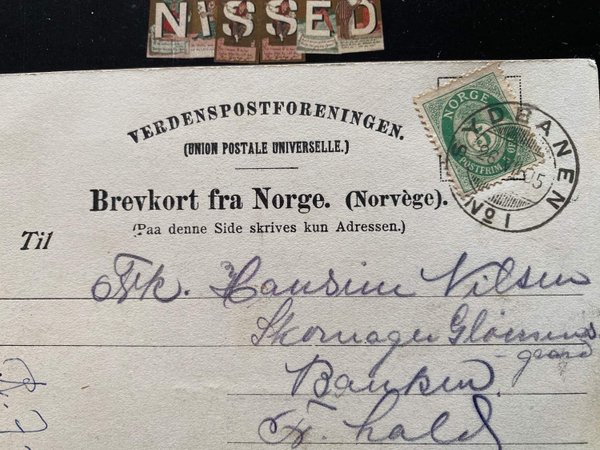 NISSED
VERDENSPOSTFORENINGEN.
(UNION POSTALE UNIVERSELLE.)
Brevkort fra Norge. (Norvège).
(Paa denne Side skrives kun Adressen.)
NORGE
POSTFRIM 5 ØRE
SYDBANEN
05
Til
Frk. Hansine Nilsen
Skomager Gløersens
- gaard
Banken
Fr. hald